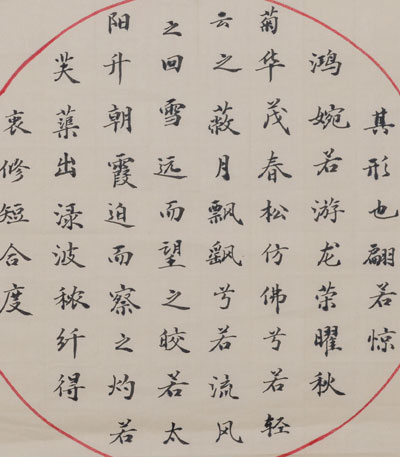 其形也翩若惊
鸿婉若游龙荣曜秋
菊华茂春松仿佛兮若轻
云之蔽月飘飖兮若流风
之回雪远而望之皎若太
阳升朝霞迫而察之灼若
芙蕖出渌波秾纤得
衷修短合度